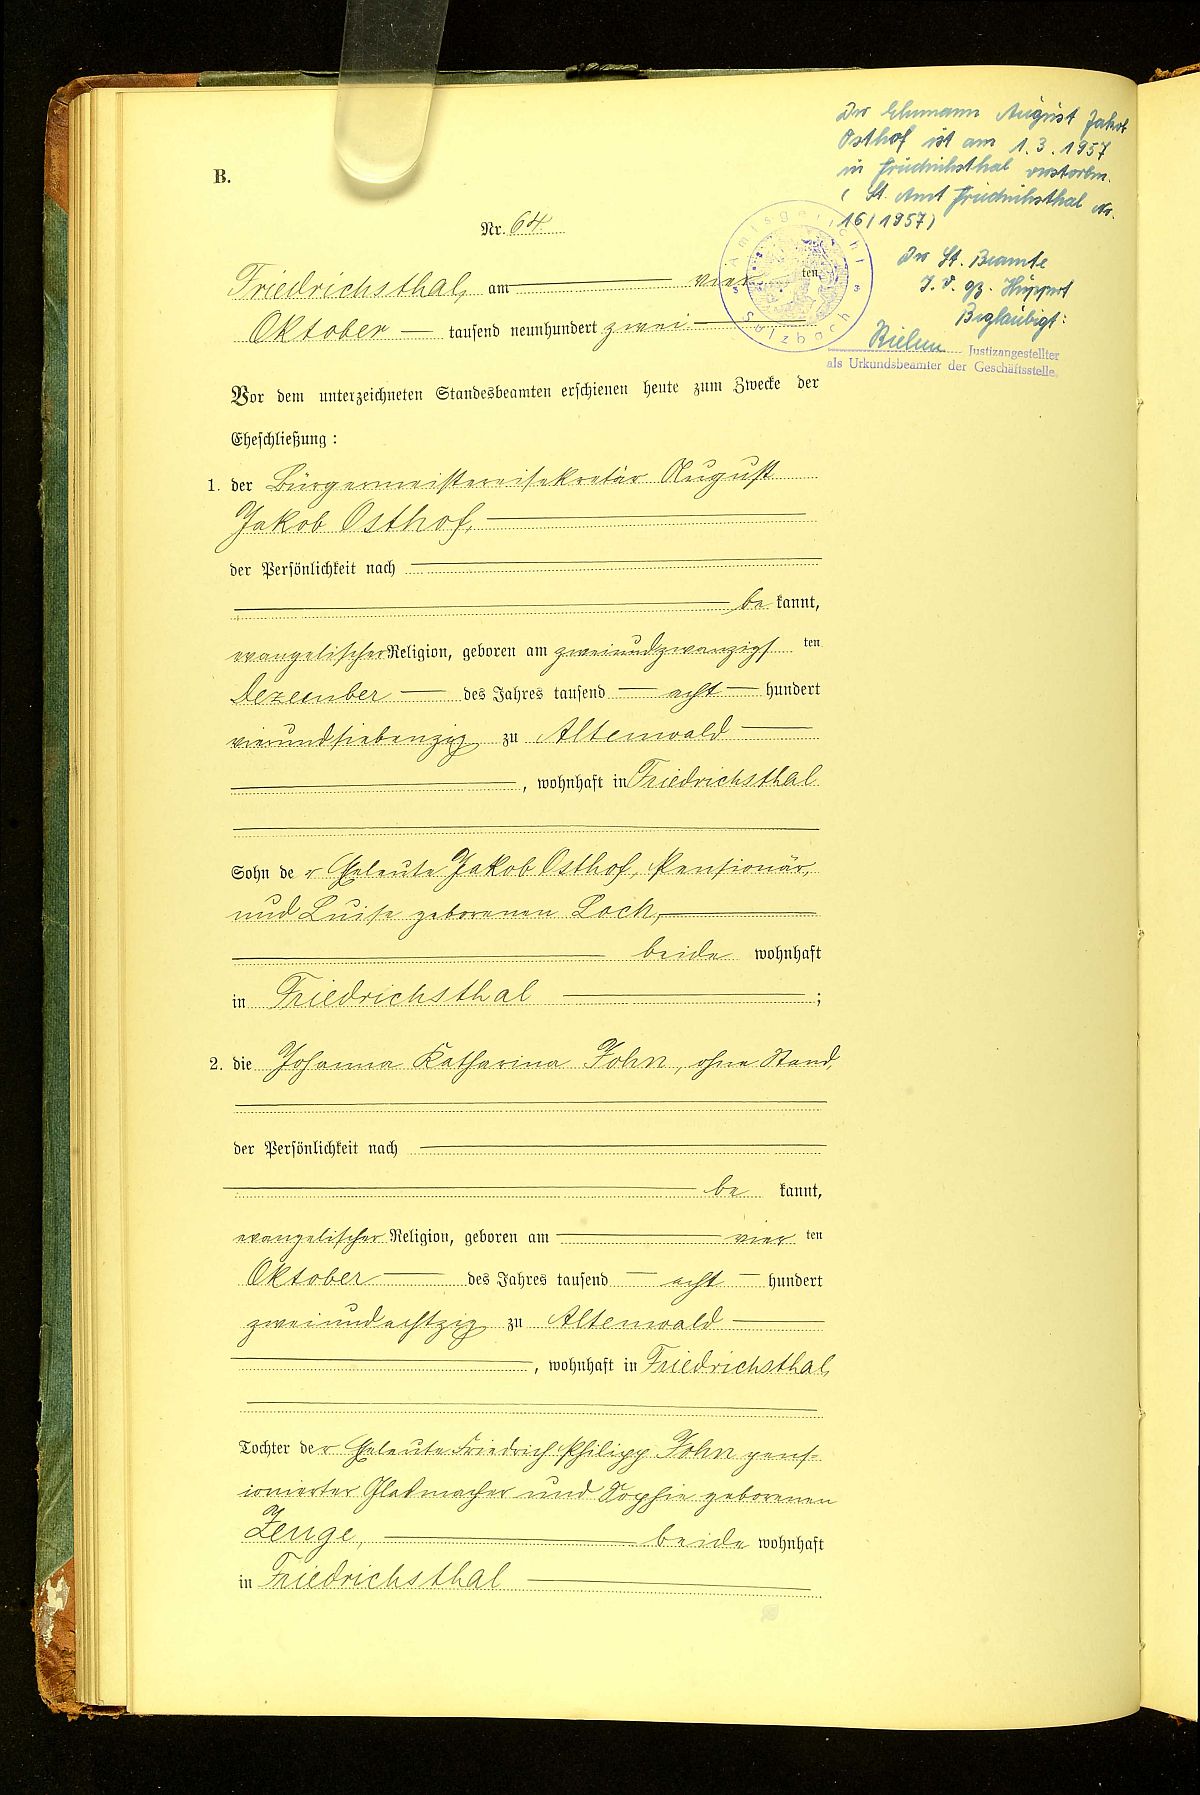 Der Ehemann August Jakob
Osthof ist am 1.3.1957
in Friedrichsthal verstorben.
( St. Amt Friedrichsthal Nr.
16/1957)
Der St. Beamte
J. V. gz. Huppert
Beglaubigt:
Justizangestellter
als Urkundsbeamter der Geschäftsstelle.
Amtsgericht
Sulzbach
B.
Nr. 64.
Friedrichsthal, am vier ten
Oktober tausend neunhundert zwei
Vor dem unterzeichneten Standesbeamten erschienen heute zum Zwecke der
Eheschließung:
1. der Bürgermeistereisekretär August
Jakob Osthof,
der Persönlichkeit nach
be kannt,
evangelischer Religion, geboren am zweiundzwanzigsten
Dezember des Jahres tausend acht hundert
vierundsiebenzig zu Altenwald
, wohnhaft in Friedrichsthal
Sohn der Eheleute Jakob Osthof, Pensionär,
und Luise geborenen Lock,
beide wohnhaft
in Friedrichsthal ;
2. die Johanna Katharina John, ohne Stand,
der Persönlichkeit nach
be kannt,
evangelischer Religion, geboren am vier ten
Oktober des Jahres tausend acht hundert
zweiundachtzig zu Altenwald
, wohnhaft in Friedrichsthal,
Tochter der Eheleute Friedrich Philipp John pens-
ionierter Glasmacher und Sophie geborenen
Zenge, beide wohnhaft
in Friedrichsthal